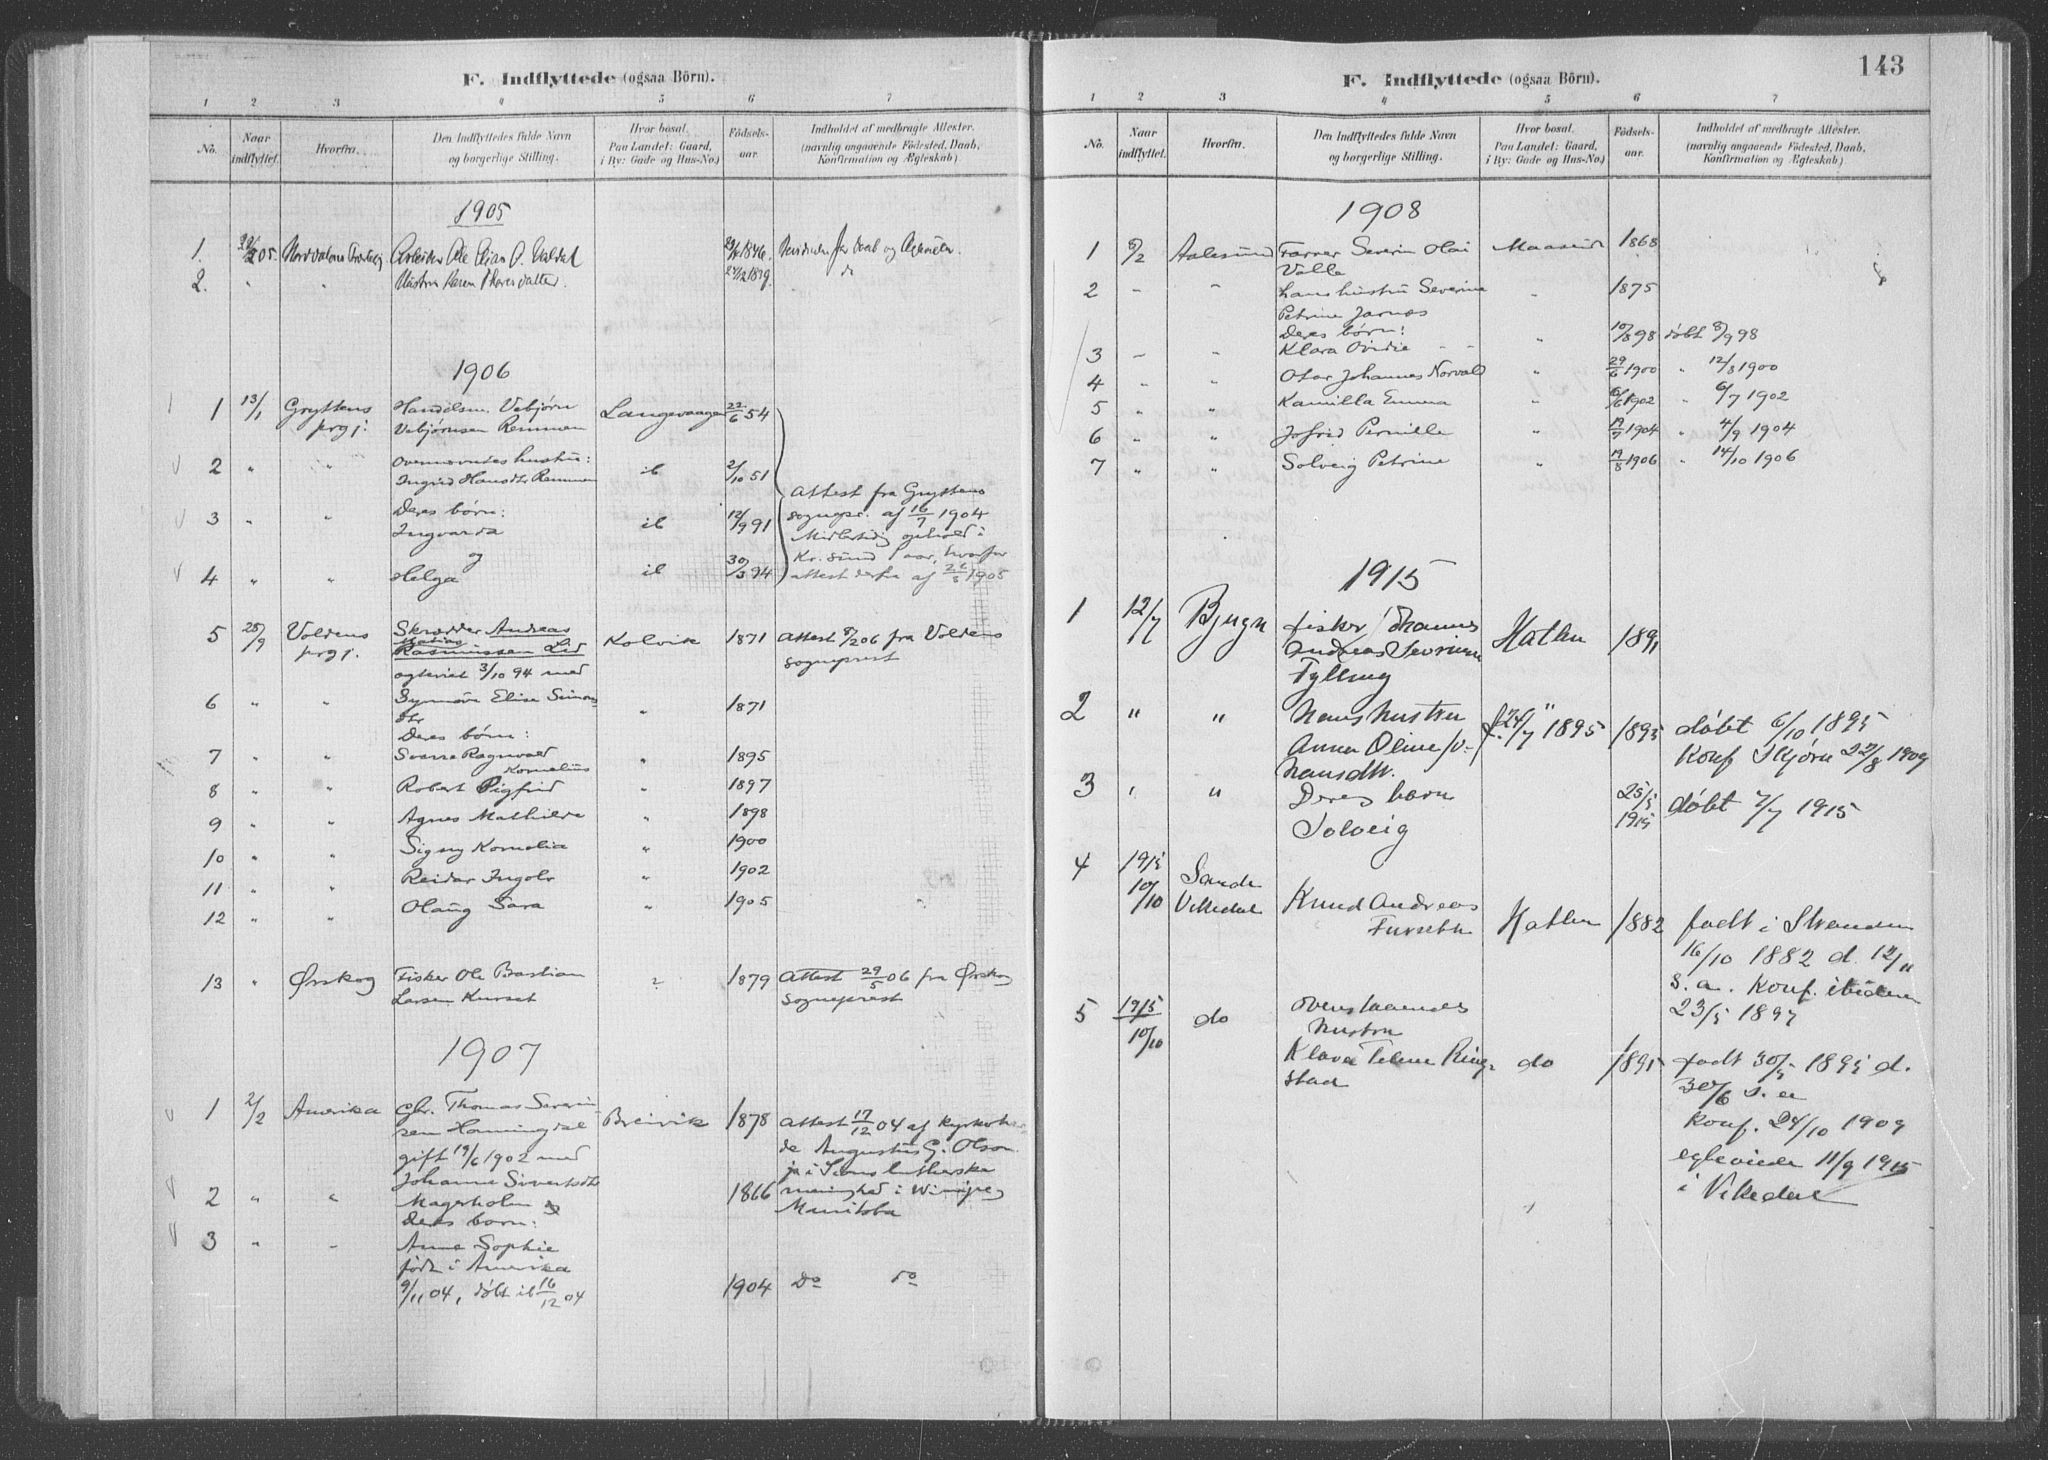 F. Indflyttede (ogsaa Börn).
1 2 3 4 5 6 7
No. Naar indflyttet. Hvorfra. Den Indflyttedes fulde Navn og borgerlige Stilling. Hvor bosat. Paa Landet: Gaard, i By: Gade og Hus-No.) Födsels-aar. Indholdet af medbragte Attester. (navnlig angaaende Födested, Daab, Konfirmation og Ægteskab).
1905
1.
2. " " Hustru Karen
1906
1 13/1 Gryttens Handelsm. Vebjørn Langevaagen 22/6 54
prgj. Vebjørnsen Remmen
2 " " Ovennævntes hustru: ib 2/10 51
Ingrid Hansdtr Remmen
Attest fra Gryttens
Deres børn:
3 " " Ingvarda ib 12/9 91
sognepr. af 16/7 1904
Midlertidig ophold i
og
Kr.sund 1 aar, hvorfor
4 " " Helga ib 30/3 94
attest derfra af 1905
5 28/9 Voldens Skrædder Andreas Kolvik 1871 Attest fra Voldens
prgj. Rasmussen Lid sogneprest
ægteviet 3/10 94 med
6 " " Synnøve Elise Simons- " 1871
dtr
Deres børn:
7 " " Sverre Ragnvald " 1895
Kornelius
8 " " Robert Sigfrid " 1897
9 " " Agnes Mathilde " 1898
10 " " Signy Kornelia " 1900
11 " " Reidar Ingolv " 1902
12 " " Olaug Sara " 1905
13 " Ørskog Fisker Ole Bastian ? 1879 Attest 29/5 06 fra Ørskog
Larsen Kurset sogneprest
1907
1 2/2 Amerika Thomas Severin- Breivik 1878 Attest 17/12 04 af kyrkoher-
sen Honningdal de Augustus G. Olson
gift 19/6 1902 med
Johanne Sivertsdtr
2 " " Magerholm 1866 i Winipeg
Deres børn: Manitoba
3 " " Anne Sophie
født i Amerika
9/11 04, døbt ib 16/12 04 1904 Do Do
143
F. Indflyttede (ogsaa Börn).
1 2 3 4 5 6 7
No. Naar indflyttet. Hvorfra. Den Indflyttedes fulde Navn og borgerlige Stilling. Hvor bosat. Paa Landet: Gaard, i By: Gade og Hus-No.) Födsels-aar. Indholdet af medbragte Attester. (navnlig angaaende Födested, Daab, Konfirmation og Ægteskab).
1908
1 6/2 Aalesund Farver Severin Olai Maaseid 1868
Valle
2 " " hans hustru Severine " 1875
Petrine Jarnes
Deres børn:
3 " " Klara Ovidie " 10/8 98 døbt 8/9 98
4 " " Otar Johannes Norvald " 29/6 1900 " 12/8 1900
5 " " Kamilla Emma " 6/6 1902 " 6/7 1902
6 " " Jofrid Pernille " 19/7 1904 " 4/9 1904
7 " " Solveig Petrine " 19/8 1906 " 14/10 1906
1915
1 12/7 Bjugn fisker Johannes Hatlen 1891
Andreas Severin
Tylling
2 " " hans hustru f. 24/7 1895 1895 døbt 6/10 1895
Anna Oline Jo- Konf 22/8 1909
hansdtr.
3 " " Deres barn 25/5 døbt 4/7 1915
Solveig 1915
4 1915
10/10 Sande
Vikedal Knud Andreas Hatlen 1882 født i Stranden
Furseth 16/10 1882 d. 12/11
s. a. Konf. ibidem
23/5 1897
5 1915 do ovenstaaendes
10/10 hustru
Klara Teline Ring- do 1895 født 30/5 1895 d.
stad 30/6 s. a
Konf. 24/10 1909
egteviede 11/9 1915
i Vikedal